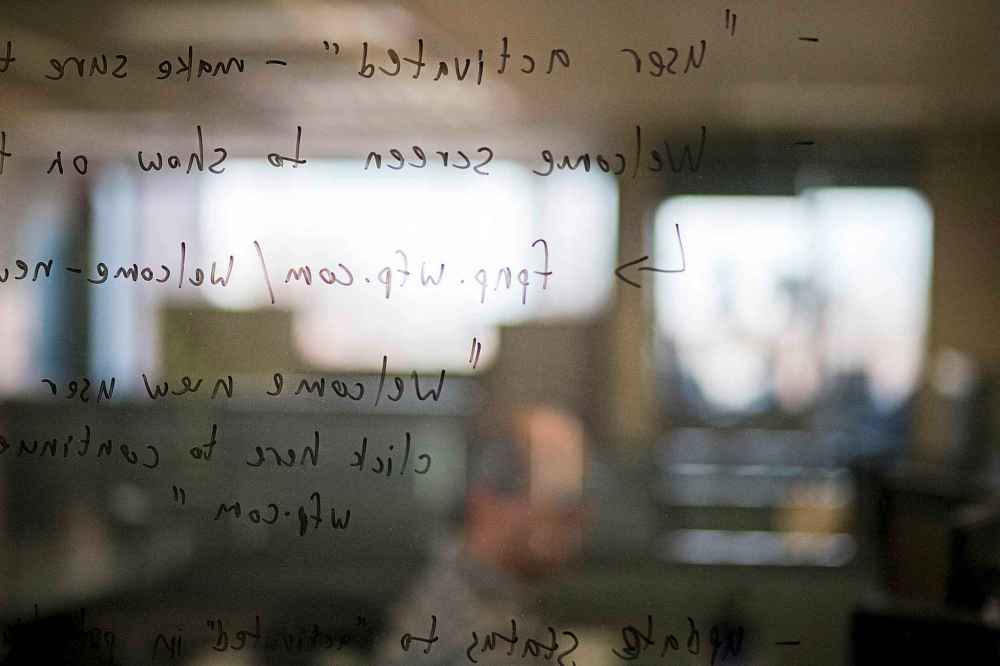 - "user activated" - make sure t
- Welcome screen to show on t
fpnp.wfp.com/welcome-new
"Welcome new user
click here to continue
wfp.com"
- update status to "activated" in